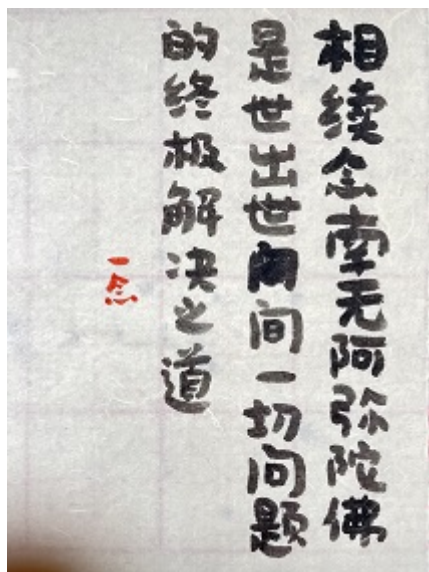 相续念南无阿弥陀佛
是世出世间一切问题
的终极解决之道
一念